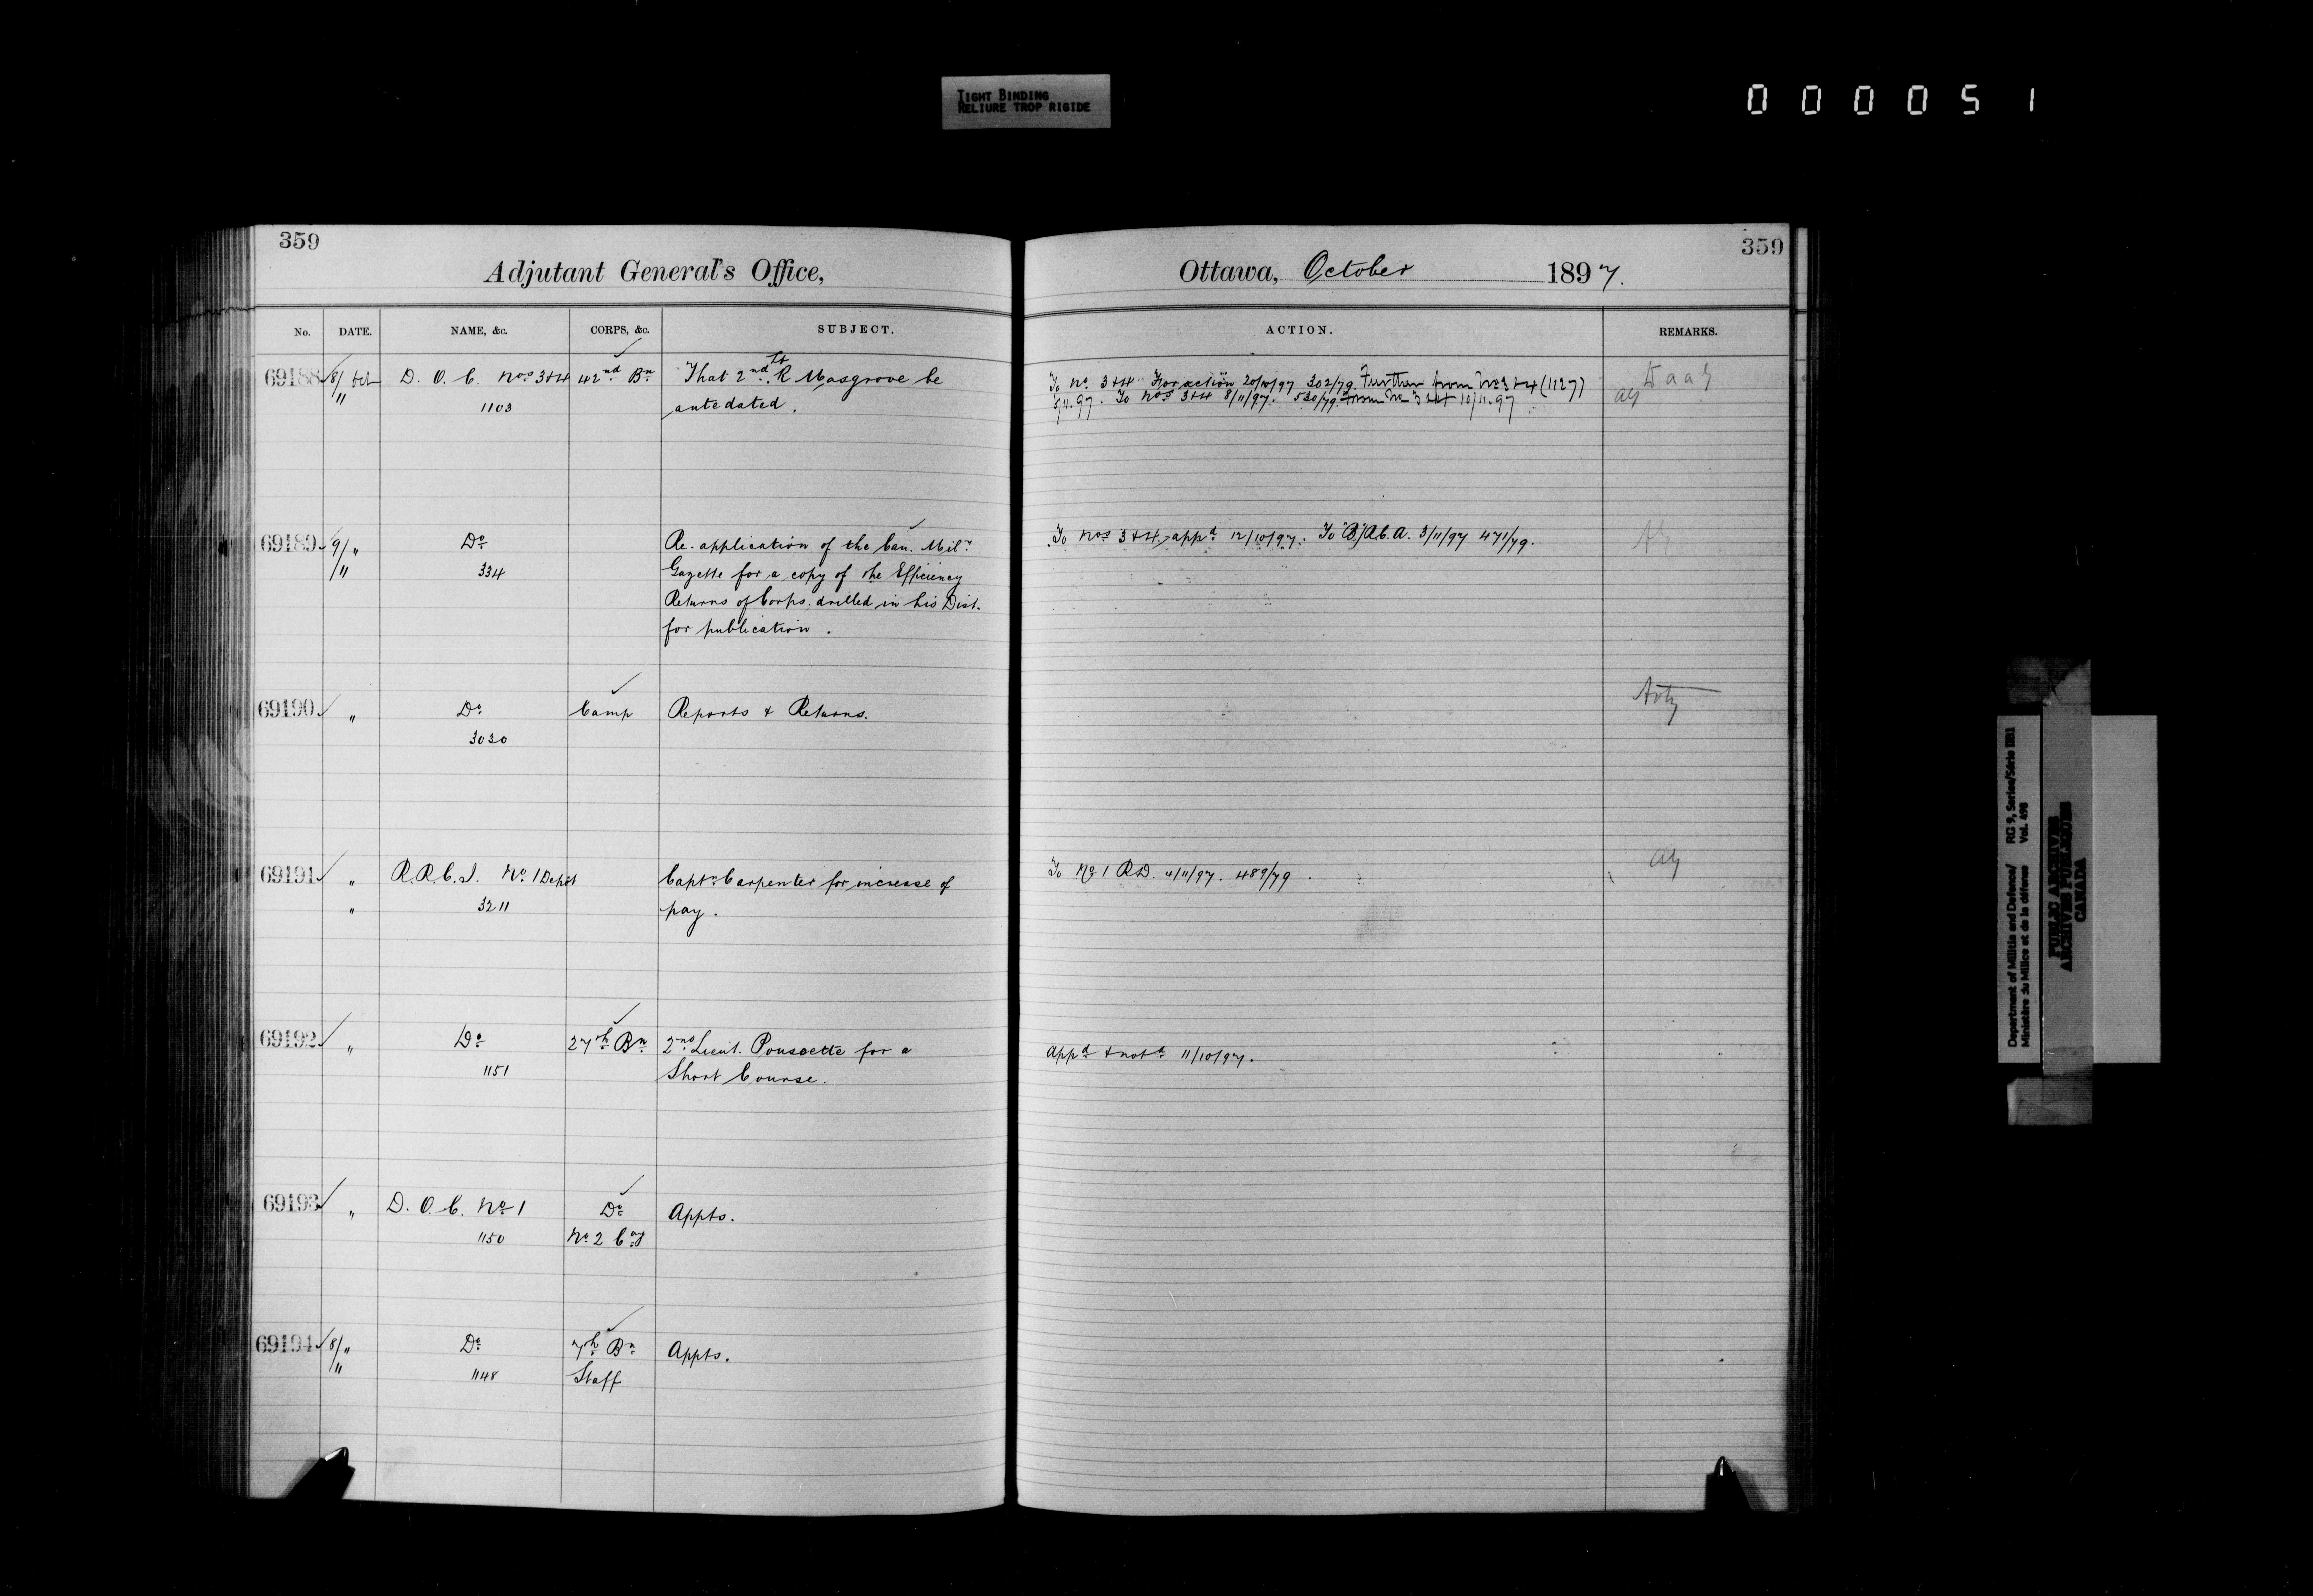 TIGHT BINDING
RELIURE TROP RIGIDE
000051
359
Adjutant General's Office,
No. DATE. NAME, &c. CORPS, &c. SUBJECT.
69188 8/ Oct D. O. C. Nos 3+4 42nd Bn That 2nd Lt R Masgrove be
11 1103 antedated.
69189 9/ " Do Re. application of the Can. Mily
/11 334 Gazette for a copy of the Efficiency
Returns of Corps. drilled in his Dist.
for publication.
69190 " Do Camp Reports & Returns.
3030
69191 " R.R.C.I. No 1 Depôt Captn Carpenter for increase of
" 3211 pay.
69192 " Do 27th Bn 2nd Lieut. Poussette for a
1151 Short Course.
69193 " D. O. C. No 1 Do Appts.
1150 No 2 Coy
69194 8/ " Do 7th Bn Appts.
/11 1148 Staff
359
Ottawa, October 1897.
ACTION. REMARKS.
To No 3+4 For action 20/10/97 302/79. Further from No 3+4 (1127) Daag
5/11.97. To Nos 3+4 8/11/97. 530/79. From No 3+4 10/11.97 ag
To Nos 3+4, appd 12/10/97. To "B", R.C.A. 3/11/97 471/79.
Arty
To No 1 R.D. 4/11/97. 489/79. ag
Appd & notd 11/10/97.
Department of Militia and Defence/
Ministère du Milice et de la défense
RG 9, Series/Série IIB1
Vol. 498
PUBLIC ARCHIVES
ARCHIVES PUBLIQUES
CANADA